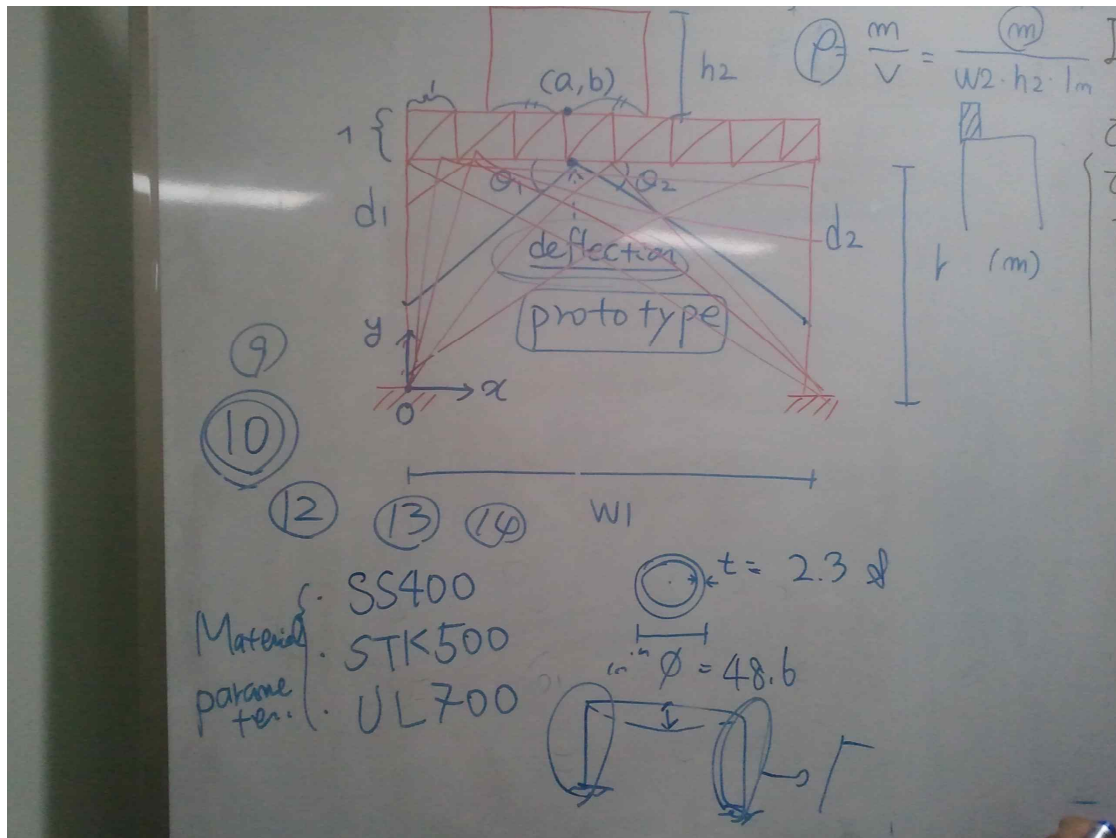 ρ = m/V = m/(W2・h2・1m)
h2
(a, b)
1
1
θ1
θ2
d1
d2
deflection
prototype
h (m)
y
x
0
9
10
12 13 14
W1
Material parameter.
・SS400
・STK500
・UL700
t = 2.3
φ = 48.6